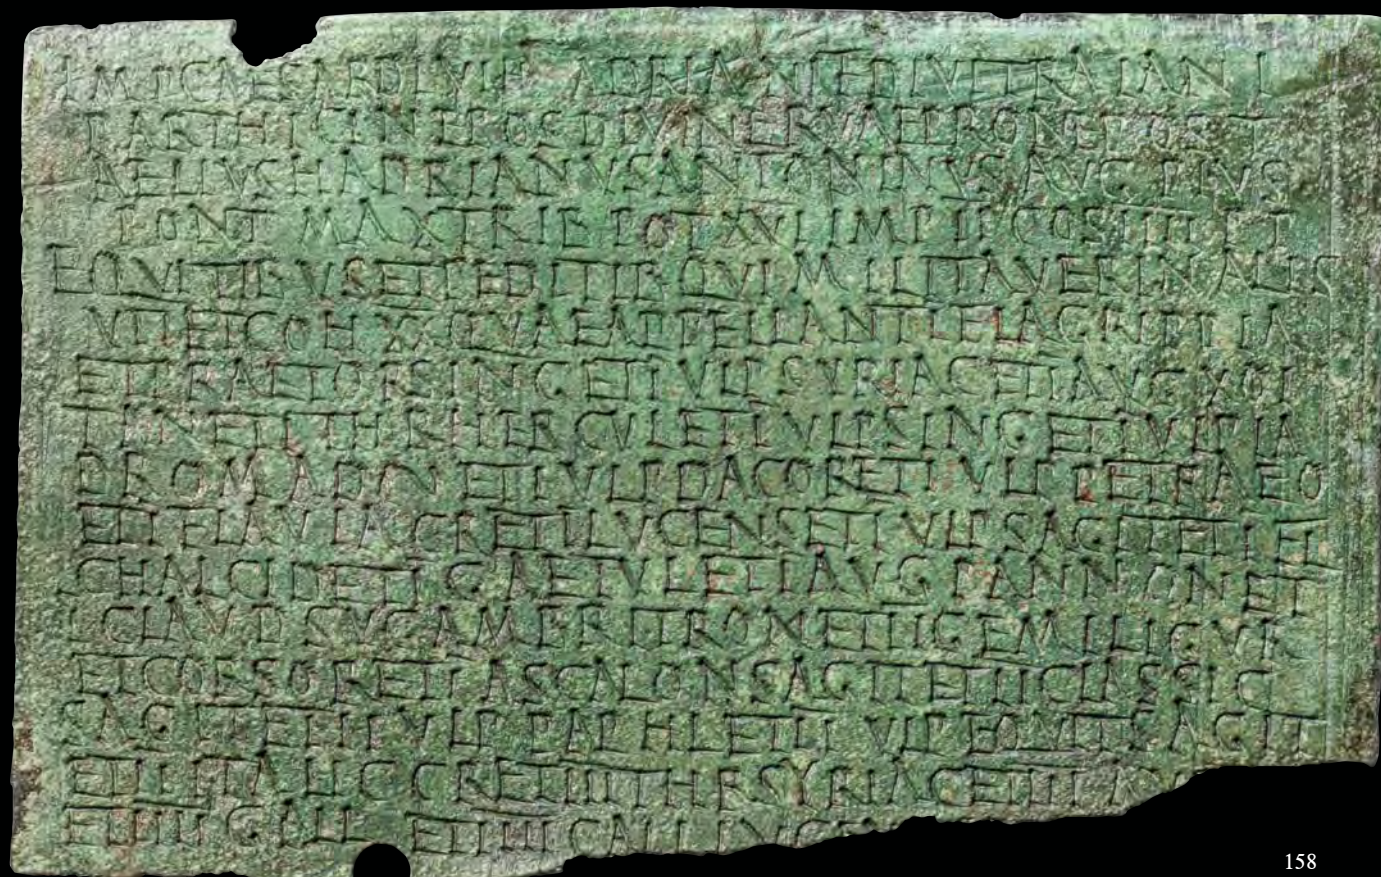 IMP CAESAR DIVI HADRIANI F DIVI TRAIANI
PARTHICI NEPOS DIVI NERVAE PRONEPOS T
AELIVS HADRIANVS ANTONINVS AVG PIVS
PONT MAX TRIB POT XVI IMP II COS IIII ET
EQVITIBVS ET PEDITIB QVI MILITAVER IN ALIS
VII ET COH XX QVAE APPELLANT
ET PRAETOR SING ET I VLP SYRIAC ET I AVG XOI
ET I THR HERCVL ET I VLP SING ET I VLPIA
DROMADN ET I VLP DACOR ET I VLP PETRAEO
ET I FLAVIA C R ET II LVCENS ET I VLP SAGIT ET I FL
CHALCID ET I GAETVL ET I AVG PANNON ET
I CLAVD SVGAMBR TIRON ET II GEM LIGVR
ET CORSOR ET I ASCALON SAGIT ET II CLASSIC
SAGIT ET III VLP PAPHL ET II VLP EQVIT SAGIT
ET II ITALIC C R ET III THR SYRIAC ET III
ET IIII GALL ET IIII CALL LVC
158